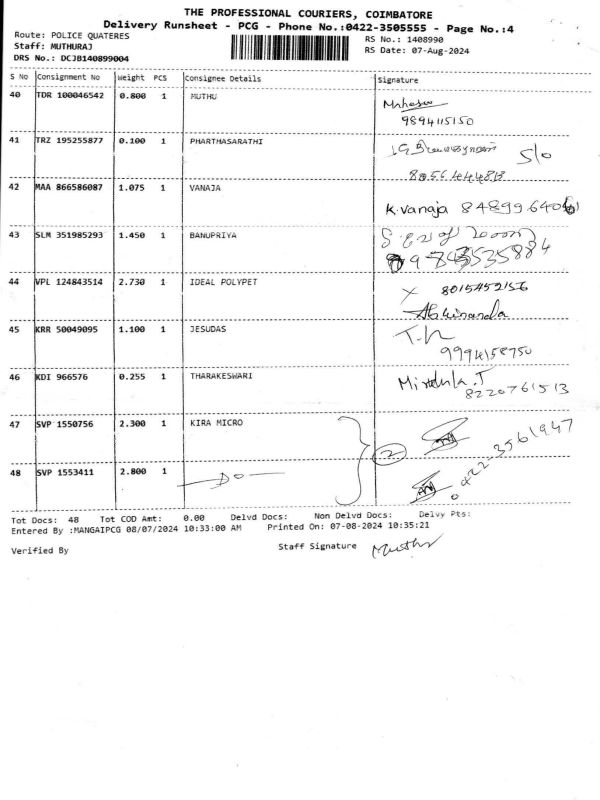 THE PROFESSIONAL COURIERS, COIMBATORE
Delivery Runsheet - PCG - Phone No.:0422-3505555 - Page No.:4
Route: POLICE QUATERES RS No.: 1408990
Staff: MUTHURAJ RS Date: 07-Aug-2024
DRS No.: DCJB140899004
S No Consignment No Weight PCS Consignee Details Signature
40 TDR 100046542 0.800 1 MUTHU
9894115150
41 TRZ 195255877 0.100 1 PHARTHASARATHI S/o
8056444813
42 MAA 866586087 1.075 1 VANAJA
K.Vanaja
43 SLM 351985293 1.450 1 BANUPRIYA
44 VPL 124843514 2.730 1 IDEAL POLYPET
8015452156
45 KRR 50049095 1.100 1 JESUDAS
9994158750
46 KDI 966576 0.255 1 THARAKESWARI
8220761513
47 SVP 1550756 2.300 1 KIRA MICRO
2 0422-3561947
48 SVP 1553411 2.800 1 -Do-
Tot Docs: 48 Tot COD Amt: 0.00 Delvd Docs: Non Delvd Docs: Delvy Pts:
Entered By :MANGAIPCG 08/07/2024 10:33:00 AM Printed On: 07-08-2024 10:35:21
Verified By Staff Signature